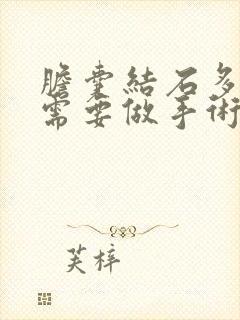 膽囊結石多
需要做手術
芙梓